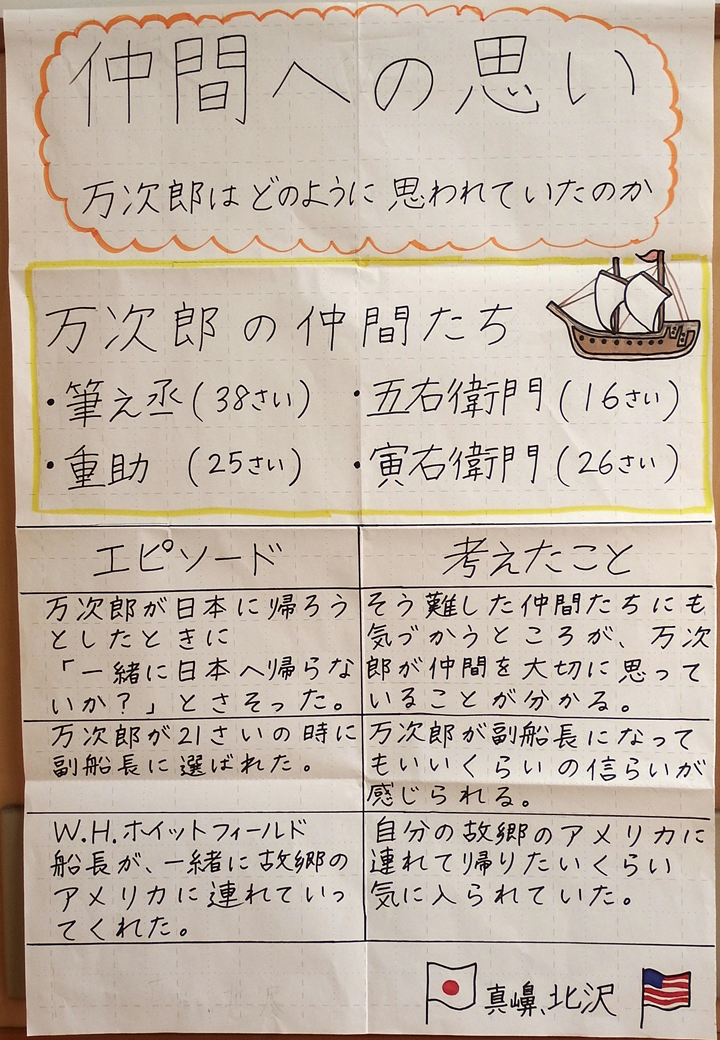 仲間への思い
万次郎はどのように思われていたのか
万次郎の仲間たち
・筆之丞(38さい)
・五右衛門(16さい)
・重助(25さい)
・寅右衛門(26さい)
エピソード
考えたこと
万次郎が日本に帰ろう
としたときに
「一緒に日本へ帰らな
いか?」とさそった。
そう難した仲間たちにも
気づかうところが、万次
郎が仲間を大切に思って
いることが分かる。
万次郎が21さいの時に
副船長に選ばれた。
万次郎が副船長になって
もいいくらいの信らいが
感じられる。
W.H.ホイットフィールド
船長が、一緒に故郷の
アメリカに連れていっ
てくれた。
自分の故郷のアメリカに
連れて帰りたいくらい
気に入られていた。
北沢